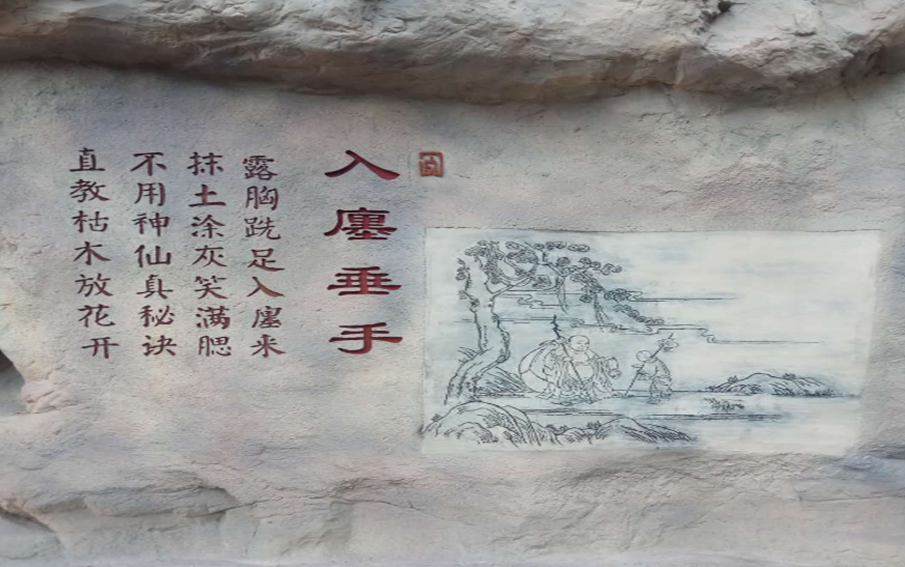 入廛垂手
露胸跣足入廛来
抹土涂灰笑满腮
不用神仙真秘诀
直教枯木放花开